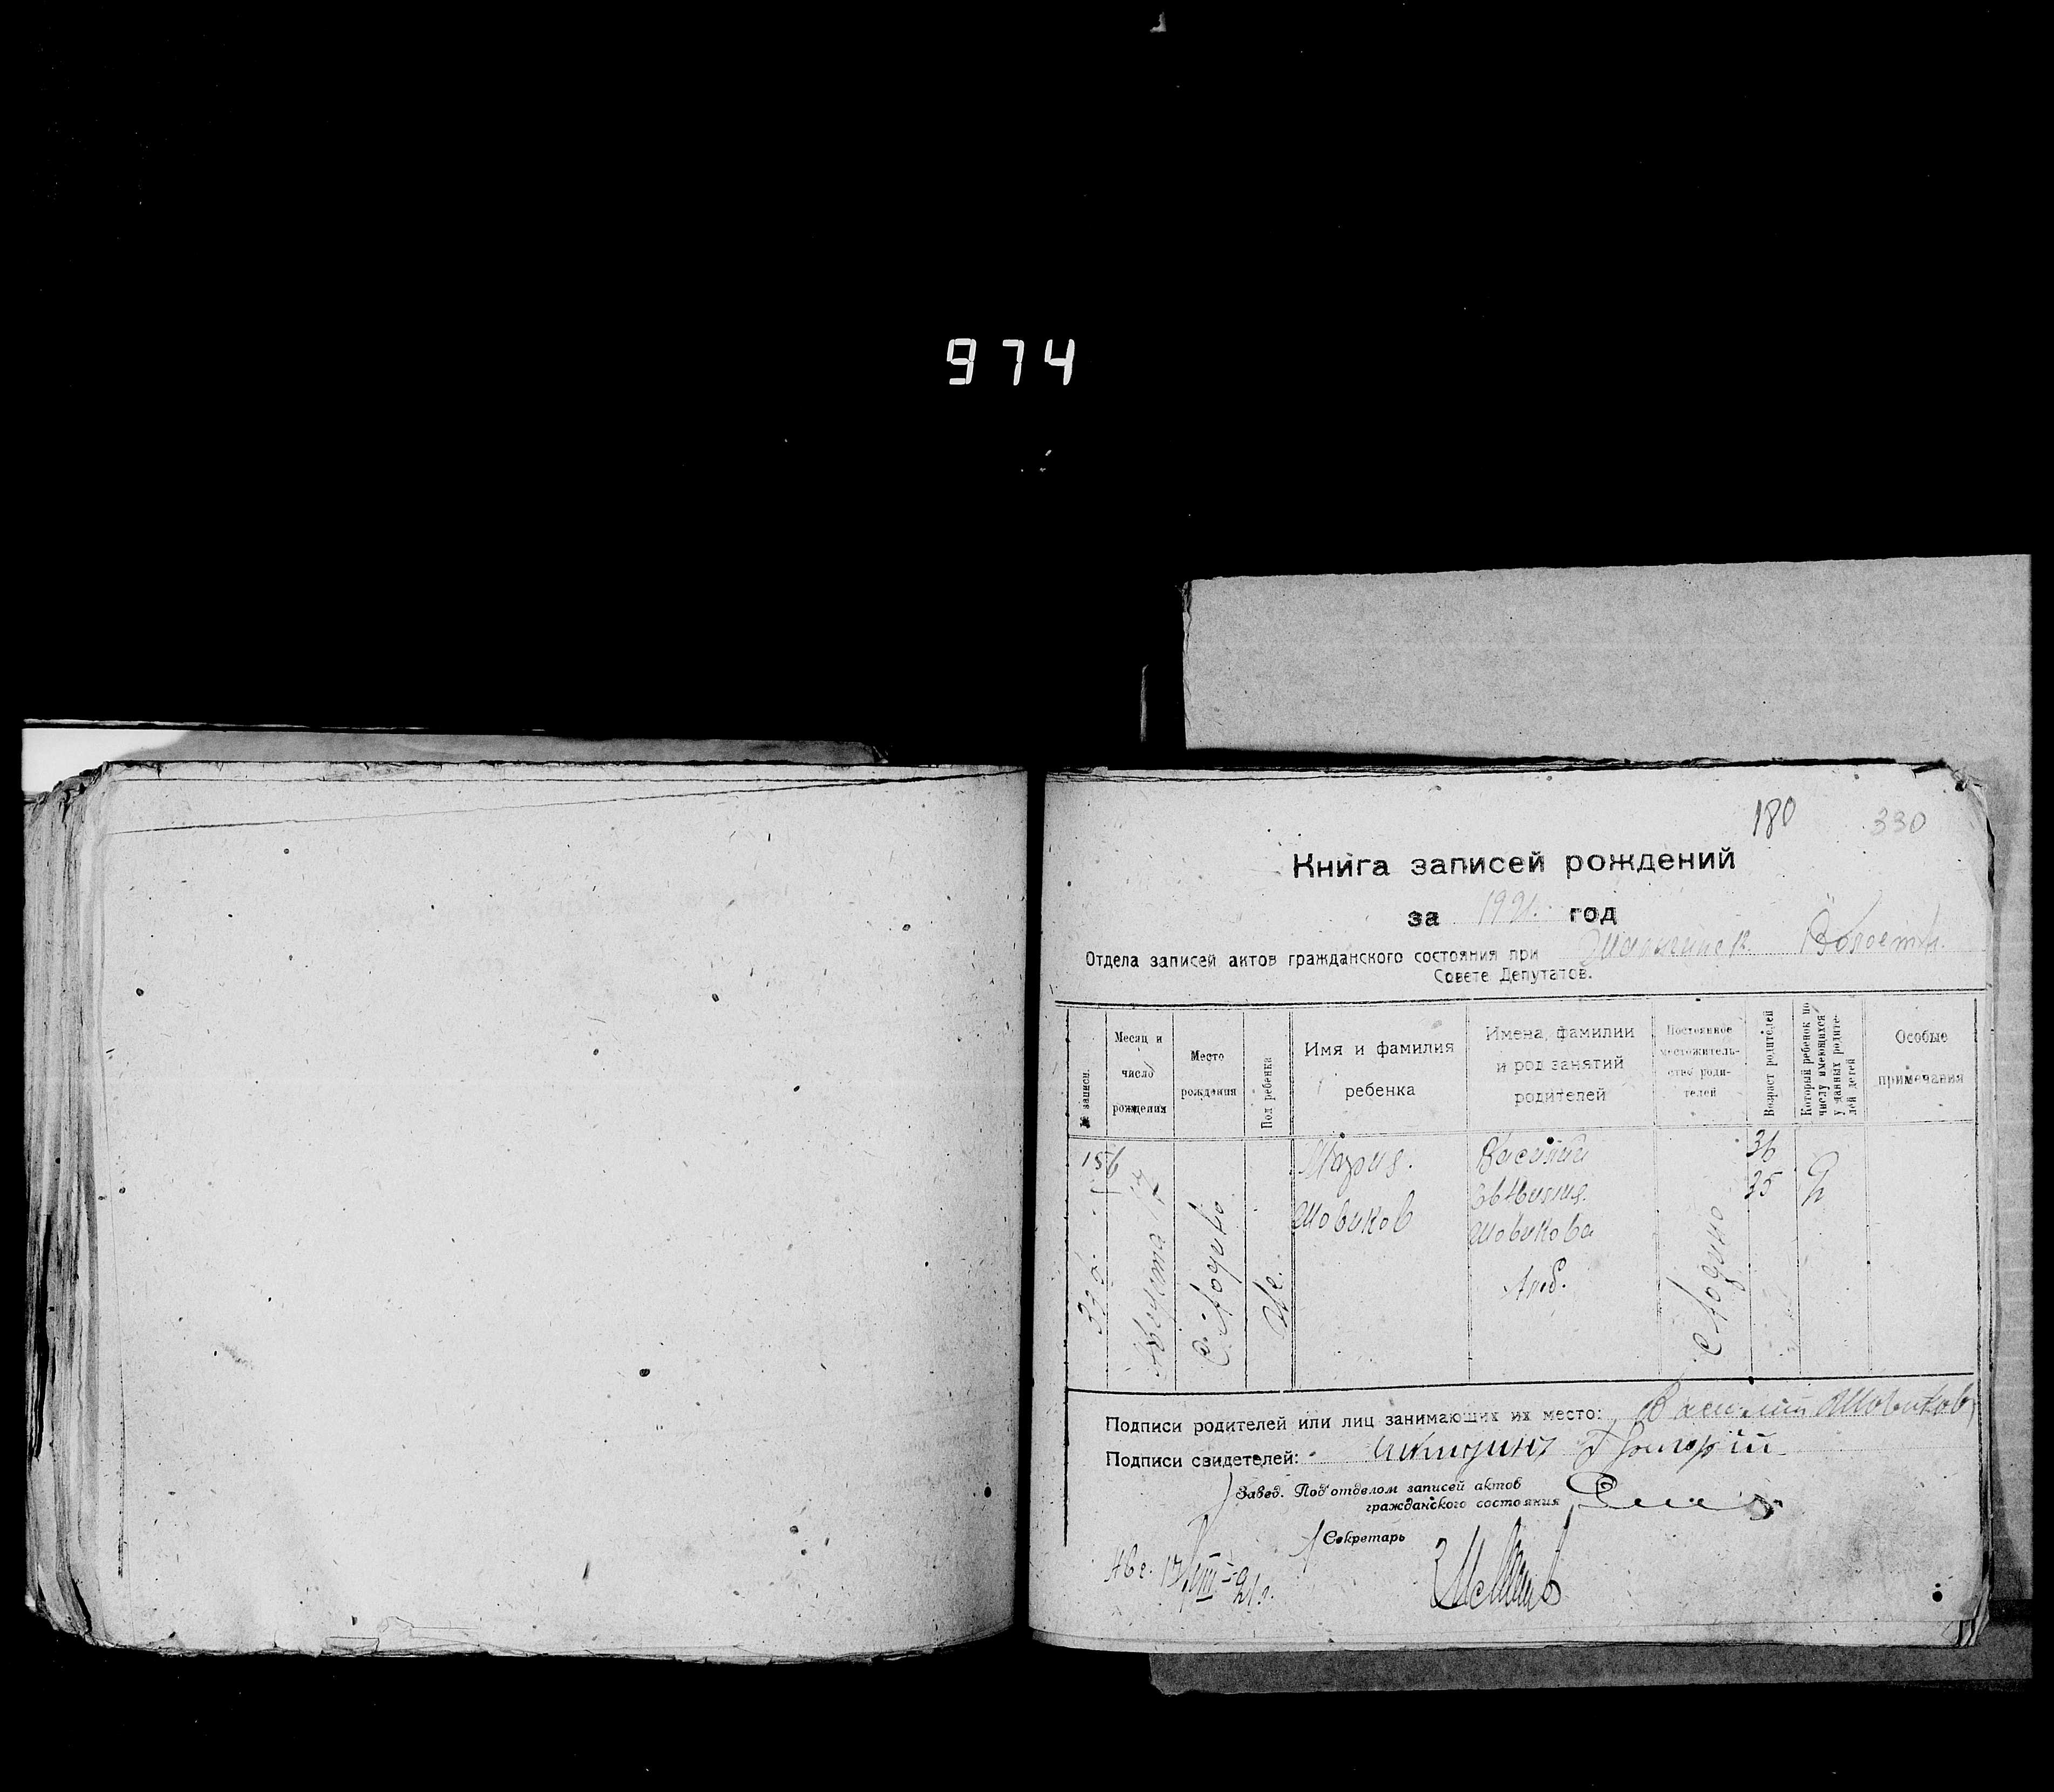 974
180 330
Книга записей рождений
за 1921. год
Отдела записей актов гражданского состояния при Волостн.
Совете Депутатов.
№ записи.
Месяц и число рождения
Место рождения
Пол ребенка
Имя и фамилия ребенка
Имена, фамилии и род занятий родителей
Постоянное местожительство родителей
Возраст родителей
Который ребенок по числу имеющихся у данных родителей детей
Особые примечания
156
330.
Августа 17
Же.
Мария.
Шовиков
Василий
Шовикова
36
35
Подписи родителей или лиц занимающих их место: Василий Шовиков
Подписи свидетелей:
Завед. Под'отделом записей актов
гражданского состояния
Секретарь
Авг. 17/VIII-21 г.